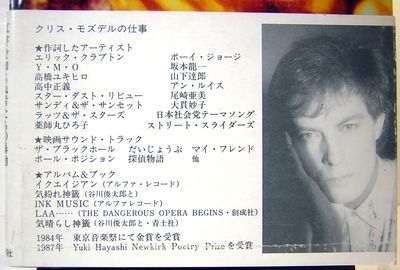 クリス・モズデルの仕事
★作詞したアーティスト
エリック・クラプトン ボーイ・ジョージ
Y・M・O 坂本龍一
高橋ユキヒロ 山下達郎
高中正義 アン・ルイス
スター・ダスト・リビュー 尾崎亜美
サンディ&ザ・サンセット 大貫妙子
ラッツ&ザ・スターズ 日本社会党テーマソング
薬師丸ひろ子 ストリート・スライダーズ
★映画サウンド・トラック
ザ・ブラックホール だいじょうぶ マイ・フレンド
ポール・ポジション 探偵物語 他
★アルバム&ブック
イクエイジアン(アルファ・レコード)
気紛れ神籤(谷川俊太郎と)
INK MUSIC(アルファレコード)
LAA……(THE DANGEROUS OPERA BEGINS・創成社)
気晴らし神籤(谷川俊太郎と・青士社)
1984年 東京音楽祭にて金賞を受賞
1987年 Yuki Hayashi Newkirk Poetry Prizeを受賞
社